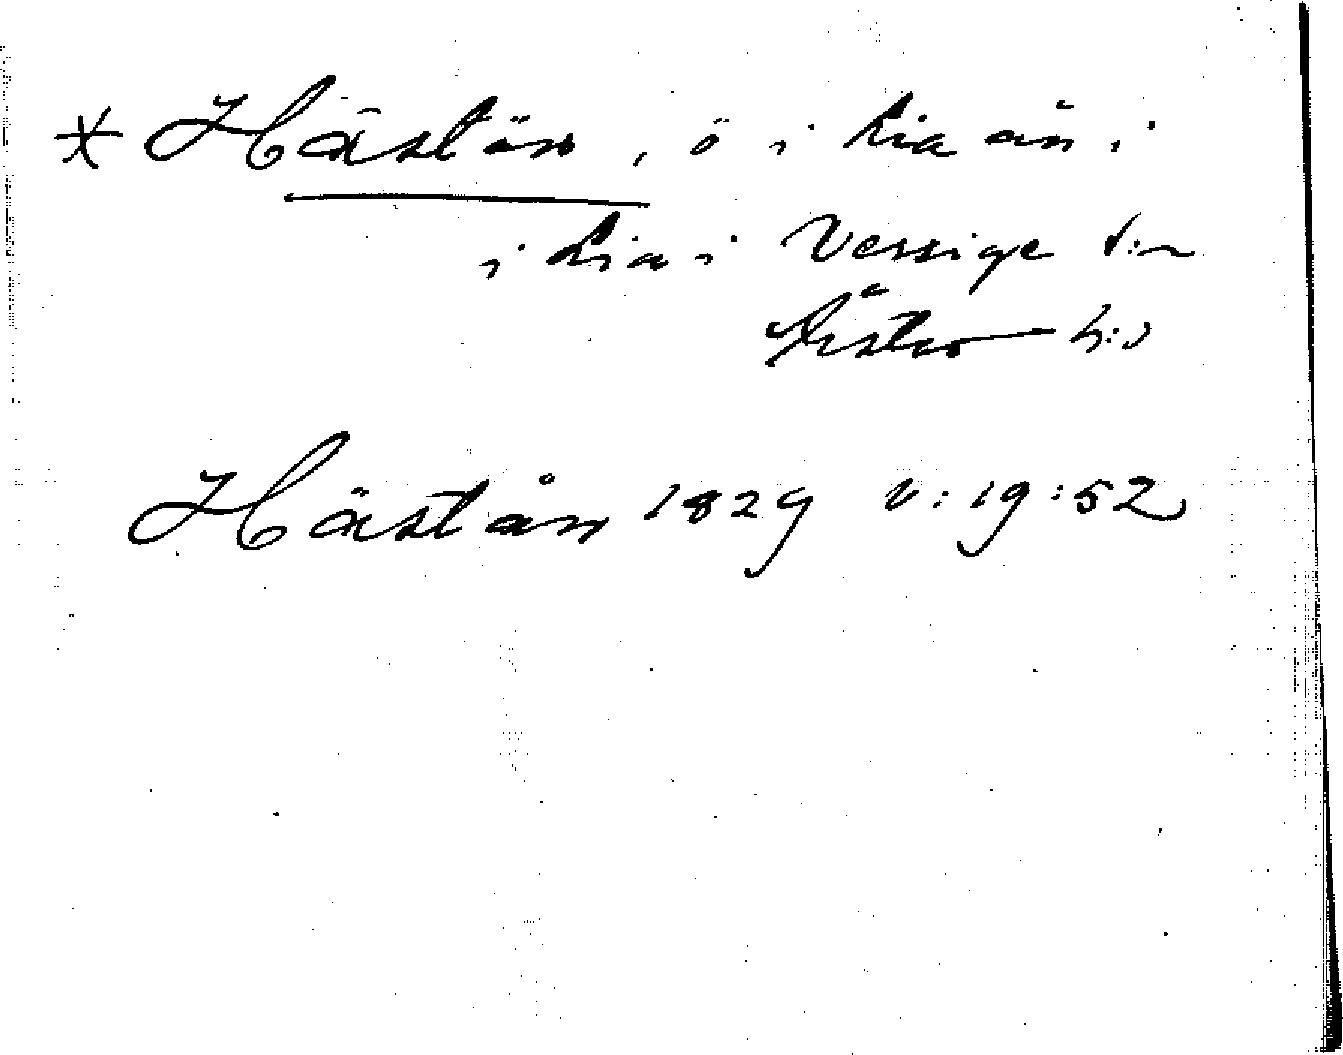 * Hästön, ö i Lia ån i
i Lia i Vessige s:n
Årstad h:d
Hästån 1829 V:19:52